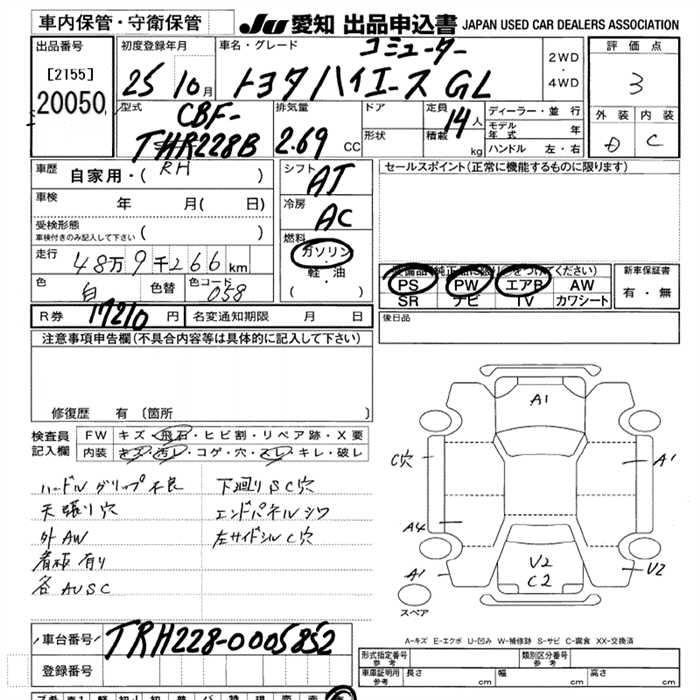 車内保管・守衛保管
JU 愛知 出品申込書 JAPAN USED CAR DEALERS ASSOCIATION
出品番号
[2155]
20050
初度登録年月
25 10月
車名・グレード
コミューター
トヨタ ハイエース GL
2WD
・
4WD
評価点
3
外装 内装
D C
型式
CBF-
THR228B
RH
排気量
2.69 CC
ドア
形状
定員 14人
積載 kg
ディーラー・並行
モデル年式 年
ハンドル 左・右
車歴
自家用・( )
車検
年 月( 日)
受検形態
車検付きのみ記入して下さい ( )
走行
48万9千266km
色 白 色替 色コード 058
シフト
AT
冷房
AC
燃料
ガソリン
軽・油
( )
セールスポイント(正常に機能するものに限ります)
PS PW エアB AW
SR ナビ TV カワシート
新車保証書
有・無
R券 17210 円 名変通知期限 月 日
後日品
注意事項申告欄(不具合内容等は具体的に記入して下さい)
修復歴 有 〔箇所
検査員
記入欄
FW キズ・飛石・ヒビ割・リペア跡・X要
内装 キズ・汚レ・コゲ・穴・スレ・キレ・破レ
ハードル グリップ不良
天張り穴
外AW
看板有り
各AUSC
下廻りSC穴
エンドパネルシワ
左サイドシルC穴
A1
C穴
A1
A4
A1
V2
C2
V2
スペア
A-キズ E-エクボ U-凹み W-補修跡 S-サビ C-腐食 XX-交換済
車台番号 TRH228-0005852
登録番号
形式指定番号
参考
類別区分番号
参考
車庫証明用
参考
長さ cm 幅 cm 高さ cm